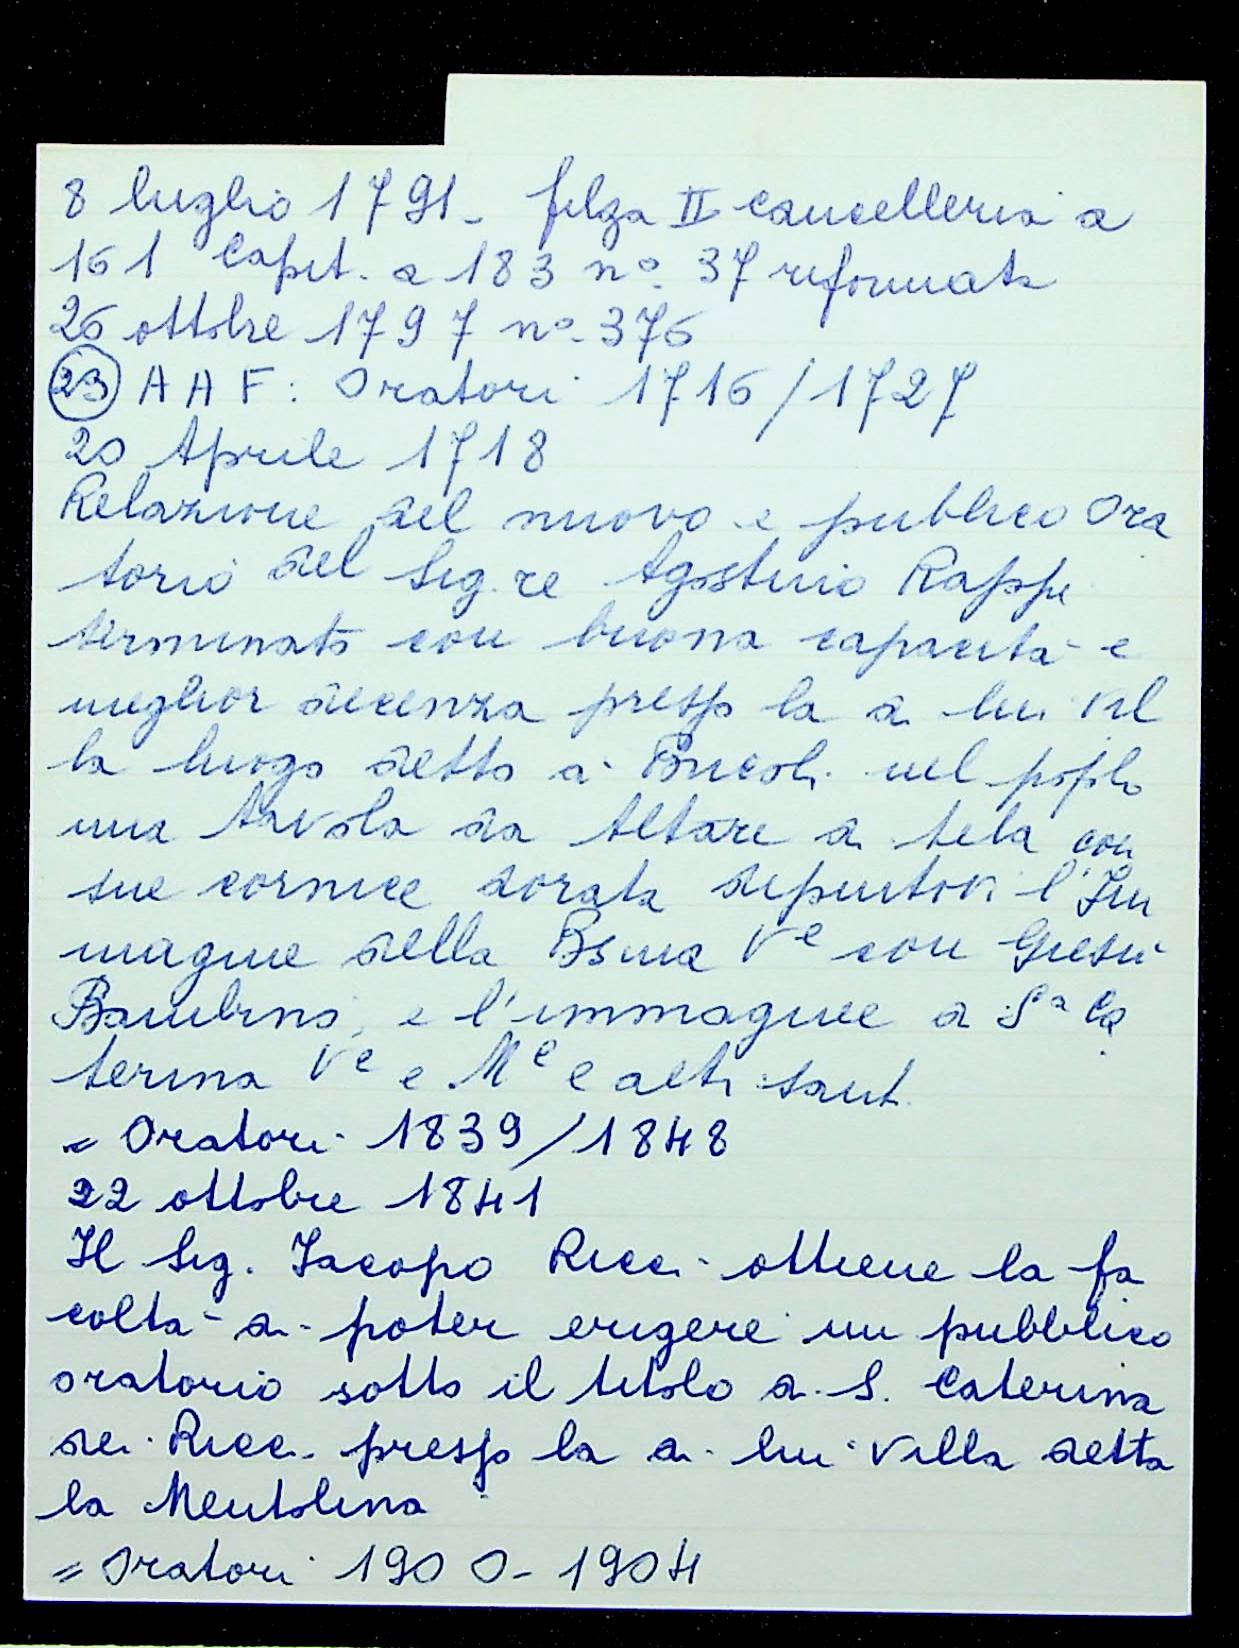 8 luglio 1791 - filza II cancelleria a
161 Capit. a 183 n° 37 riformata
26 ottobre 1797 n° 376
23 A A F: Oratori 1716/1727
20 Aprile 1718
Relazione del nuovo e pubblico Ora
torio del Sig.re Agostino Rappi
terminato con buona capacità e
meglior decenza presso la di lui Vil
la luogo detto a Bucoli nel popolo
una tavola da Altare di tela con
sue cornice dorata dipintovi l'Im
magine della Bsma Ve con Giesù
Bambino, e l'immagine di Sa Ca
terina Ve e Me e altri santi
= Oratori 1839/1848
22 ottobre 1841
Il Sig. Jacopo Ricci ottiene la fa
coltà di poter erigere un pubblico
oratorio sotto il titolo di S. Caterina
dei Ricci presso la di lui Villa detta
la Mentolina
= Oratori 1900-1904